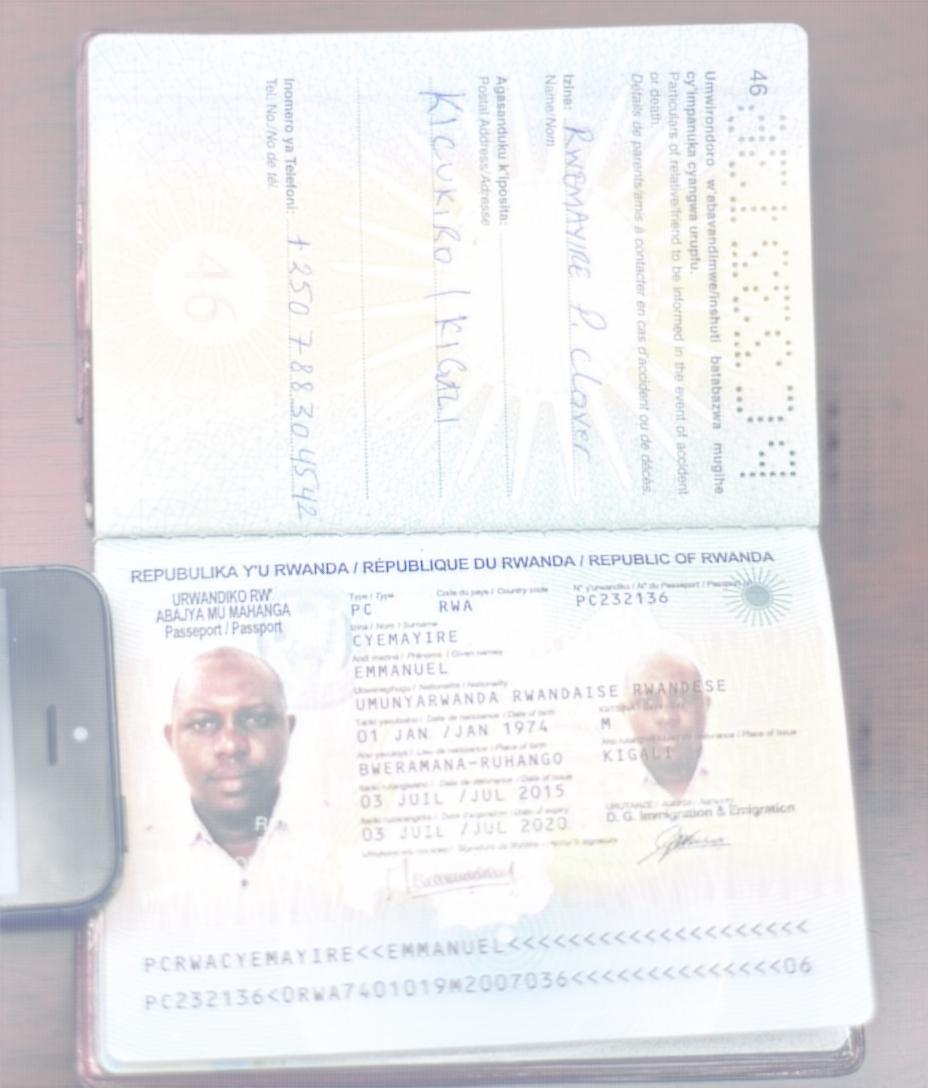 46
Umwirondoro w'abavandimwe/inshuti batabazwa mugihe
cy'impanuka cyangwa urupfu.
Particulars of relative/friend to be informed in the event of accident
or death.
Détails de parents/amis à contacter en cas d'accident ou de décès.
Izina: RWEMAYIRE P. Clover
Name/Nom
Agasanduku k'Iposita:
Postal Address/Adresse
KICUKIRO / KIGALI
Inomero ya Telefoni: +250 788304542
Tel. No./No de tél.
46
REPUBULIKA Y'U RWANDA / RÉPUBLIQUE DU RWANDA / REPUBLIC OF RWANDA
URWANDIKO RW'
ABAJYA MU MAHANGA
Passeport / Passport
Type / Type
Code du pays / Country code
N° y'urwandiko / N° du Passeport / Passport
PC
RWA
PC232136
Izina / Nom / Surname
CYEMAYIRE
Andi mazina / Prénoms / Given names
EMMANUEL
Ubwenegihugu / Nationalité / Nationality
UMUNYARWANDA RWANDAISE RWANDESE
Date de naissance / Date of birth
01 JAN /JAN 1974
M
Lieu de naissance / Place of birth
Place of Issue
BWERAMANA-RUHANGO
KIGALI
Date de délivrance / Date of issue
03 JUIL /JUL 2015
Date d'expiration / Date of expiry
D. G. Immigration & Emigration
03 JUIL /JUL 2020
PCRWACYEMAYIRE<<EMMANUEL<<<<<<<<<<<<<<<<<<<<
PC232136<0RWA7401019M2007036<<<<<<<<<<<<<<06